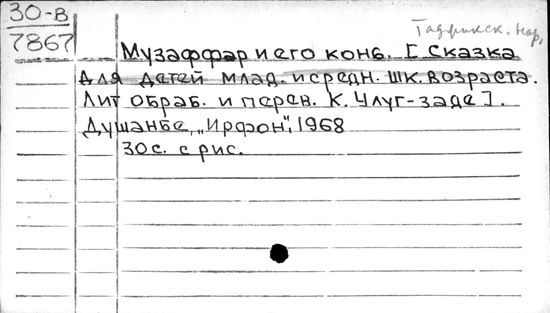 30-В
7867
Таджикск. нар.
Музаффар и его конь. [Сказка
для детей млад. и средн. шк. возраста.
Лит обраб. и перев. К. Улуг-заде].
Душанбе, „Ирфон", 1968
30с. с рис.